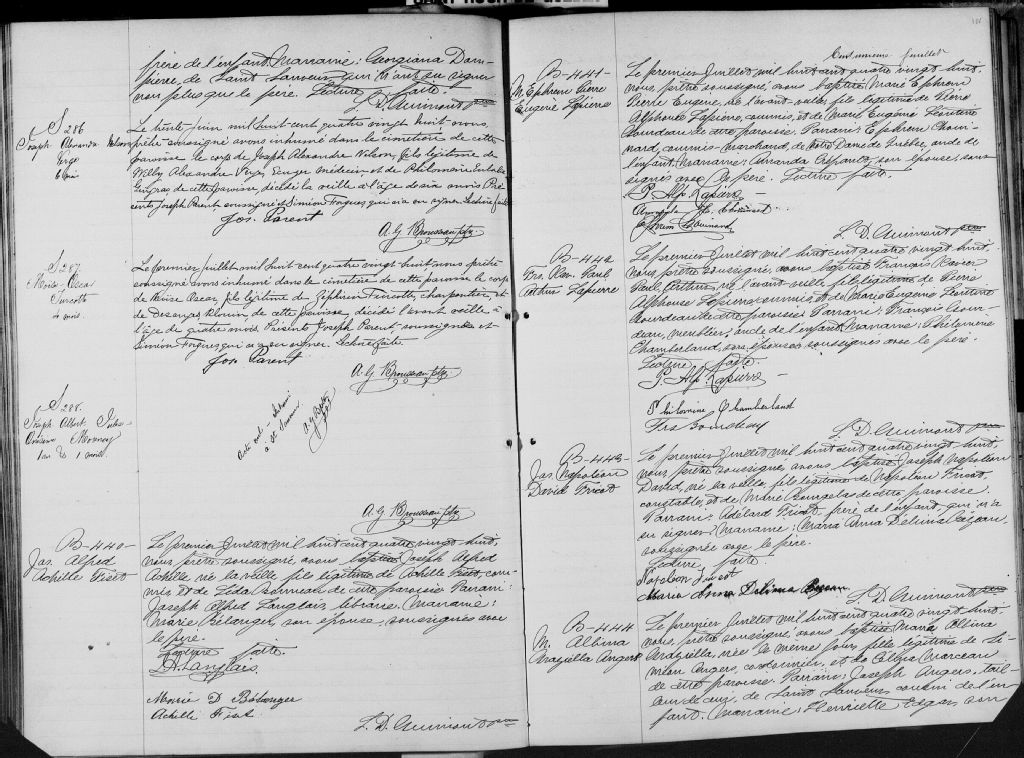 frère de l'enfant. Marraine: Georgiana Dom-
pierre, de Saint Sauveur qui n'ont su signer
non plus que le père. Lecture faite.
L. D. Guimont ptre
S. 286
Joseph Alexandre Nelson
6 mois
Le trente juin mil huit cent quatre vingt huit nous,
prêtre soussigné avons inhumé dans le cimetière de cette
paroisse le corps de Joseph Alexandre Nelson, fils légitime de
Willy Alexandre Verge, Ecuyer médecin et de Philomène
Gingras de cette paroisse, décédé la veille à l'âge de six mois. Pré-
sents Joseph Parent soussigné et Simon Forgues qui n'a su signer. Lecture faite
Jos. Parent
A. G. Brousseau ptre
S. 287
Moïse Oscar
Turcotte
4 mois.
Le premier juillet mil huit cent quatre vingt huit nous prêtre
soussigné avons inhumé dans le cimetière de cette paroisse le corps
de Moïse Oscar, fils légitime de Zéphirin Turcotte, charpentier, et
de Desanges Blouin, de cette paroisse, décédé l'avant veille à
l'âge de quatre mois. Présents Joseph Parent soussigné et
Simon Forgues qui n'a su signer. Lecture faite.
Jos. Parent
A. G. Brousseau ptre
S. 288.
Joseph Albert Jules
1 an & 1 mois.
à St Sauveur
A. G. Brousseau ptre
B-440-
Jos. Alfred
Achille Fiset
Le premier Juillet mil huit cent quatre vingt huit,
nous, prêtre soussigné, avons baptisé Joseph Alfred
Achille né la veille fils légitime de Achille Fiset, com-
mis et de Lida Bonneau de cette paroisse. Parrain:
Joseph Alfred Langlais libraire. Marraine:
Marie Bélanger, son épouse, soussignés avec
le père.
Lecture faite.
J. A. Langlais.
Marie D Bélanger
Achille Fiset.
L. D. Guimont ptre
Cent onzième feuillet
B-441-
M. Ephrem Pierre
Eugène Lapierre
Le premier Juillet mil huit cent quatre vingt huit,
nous, prêtre soussigné, avons baptisé Marie Ephrem
Pierre Eugène, né l'avant veille, fils légitime de Pierre
Alphonse Lapierre, commis, et de Marie Eugénie Léontine
Bourdeau de cette paroisse. Parrain: Ephrem Choui-
nard, commis-marchand, de Notre Dame de Québec, oncle de
l'enfant. Marraine: Amanda son épouse, sous-
signés avec le père. Lecture faite.
P. Alp. Lapierre
Ephrem Chouinard
L. D. Guimont ptre
B-442
Frs. Xav. Paul
Arthur Lapierre
Le premier Juillet mil huit cent quatre vingt huit,
nous, prêtre soussigné, avons baptisé François Xavier
Paul Arthur, né l'avant veille fils légitime de Pierre
Alphonse Lapierre, commis, et de Marie Eugénie Léontine
Bourdeau de cette paroisse. Parrain: François Bour-
deau, meublier, oncle de l'enfant. Marraine: Philomène
Chamberland, son épouse, soussignés avec le père.
Lecture faite.
P. Alp. Lapierre
Philomène Chamberland
Frs Bourdeau
L. D. Guimont ptre
B-443-
Jos. Napoléon
David Fiset
Le premier Juillet mil huit cent quatre vingt huit,
nous, prêtre soussigné, avons baptisé Joseph Napoléon
David, né la veille, fils légitime de Napoléon Fiset,
constable, et de Marie Bourgela de cette paroisse.
Parrain: Adélard Fiset, frère de l'enfant, qui n'a
su signer. Marraine: Maria Anna Delima
soussignée avec le père.
Lecture faite.
Napoléon Fiset
Maria Anna Delima
L. D. Guimont ptre
B-444
M. Albina
Graziella Angers
Le premier Juillet mil huit cent quatre vingt huit,
nous, prêtre soussigné, avons baptisé Marie Albina
Graziella, née le même jour, fille légitime de Si-
méon Angers, cordonnier, et de Célina Marceau
de cette paroisse. Parrain: Joseph Angers, tail-
leur de cuir, de Saint Sauveur, cousin de l'en-
fant. Marraine: Henriette Edgar son